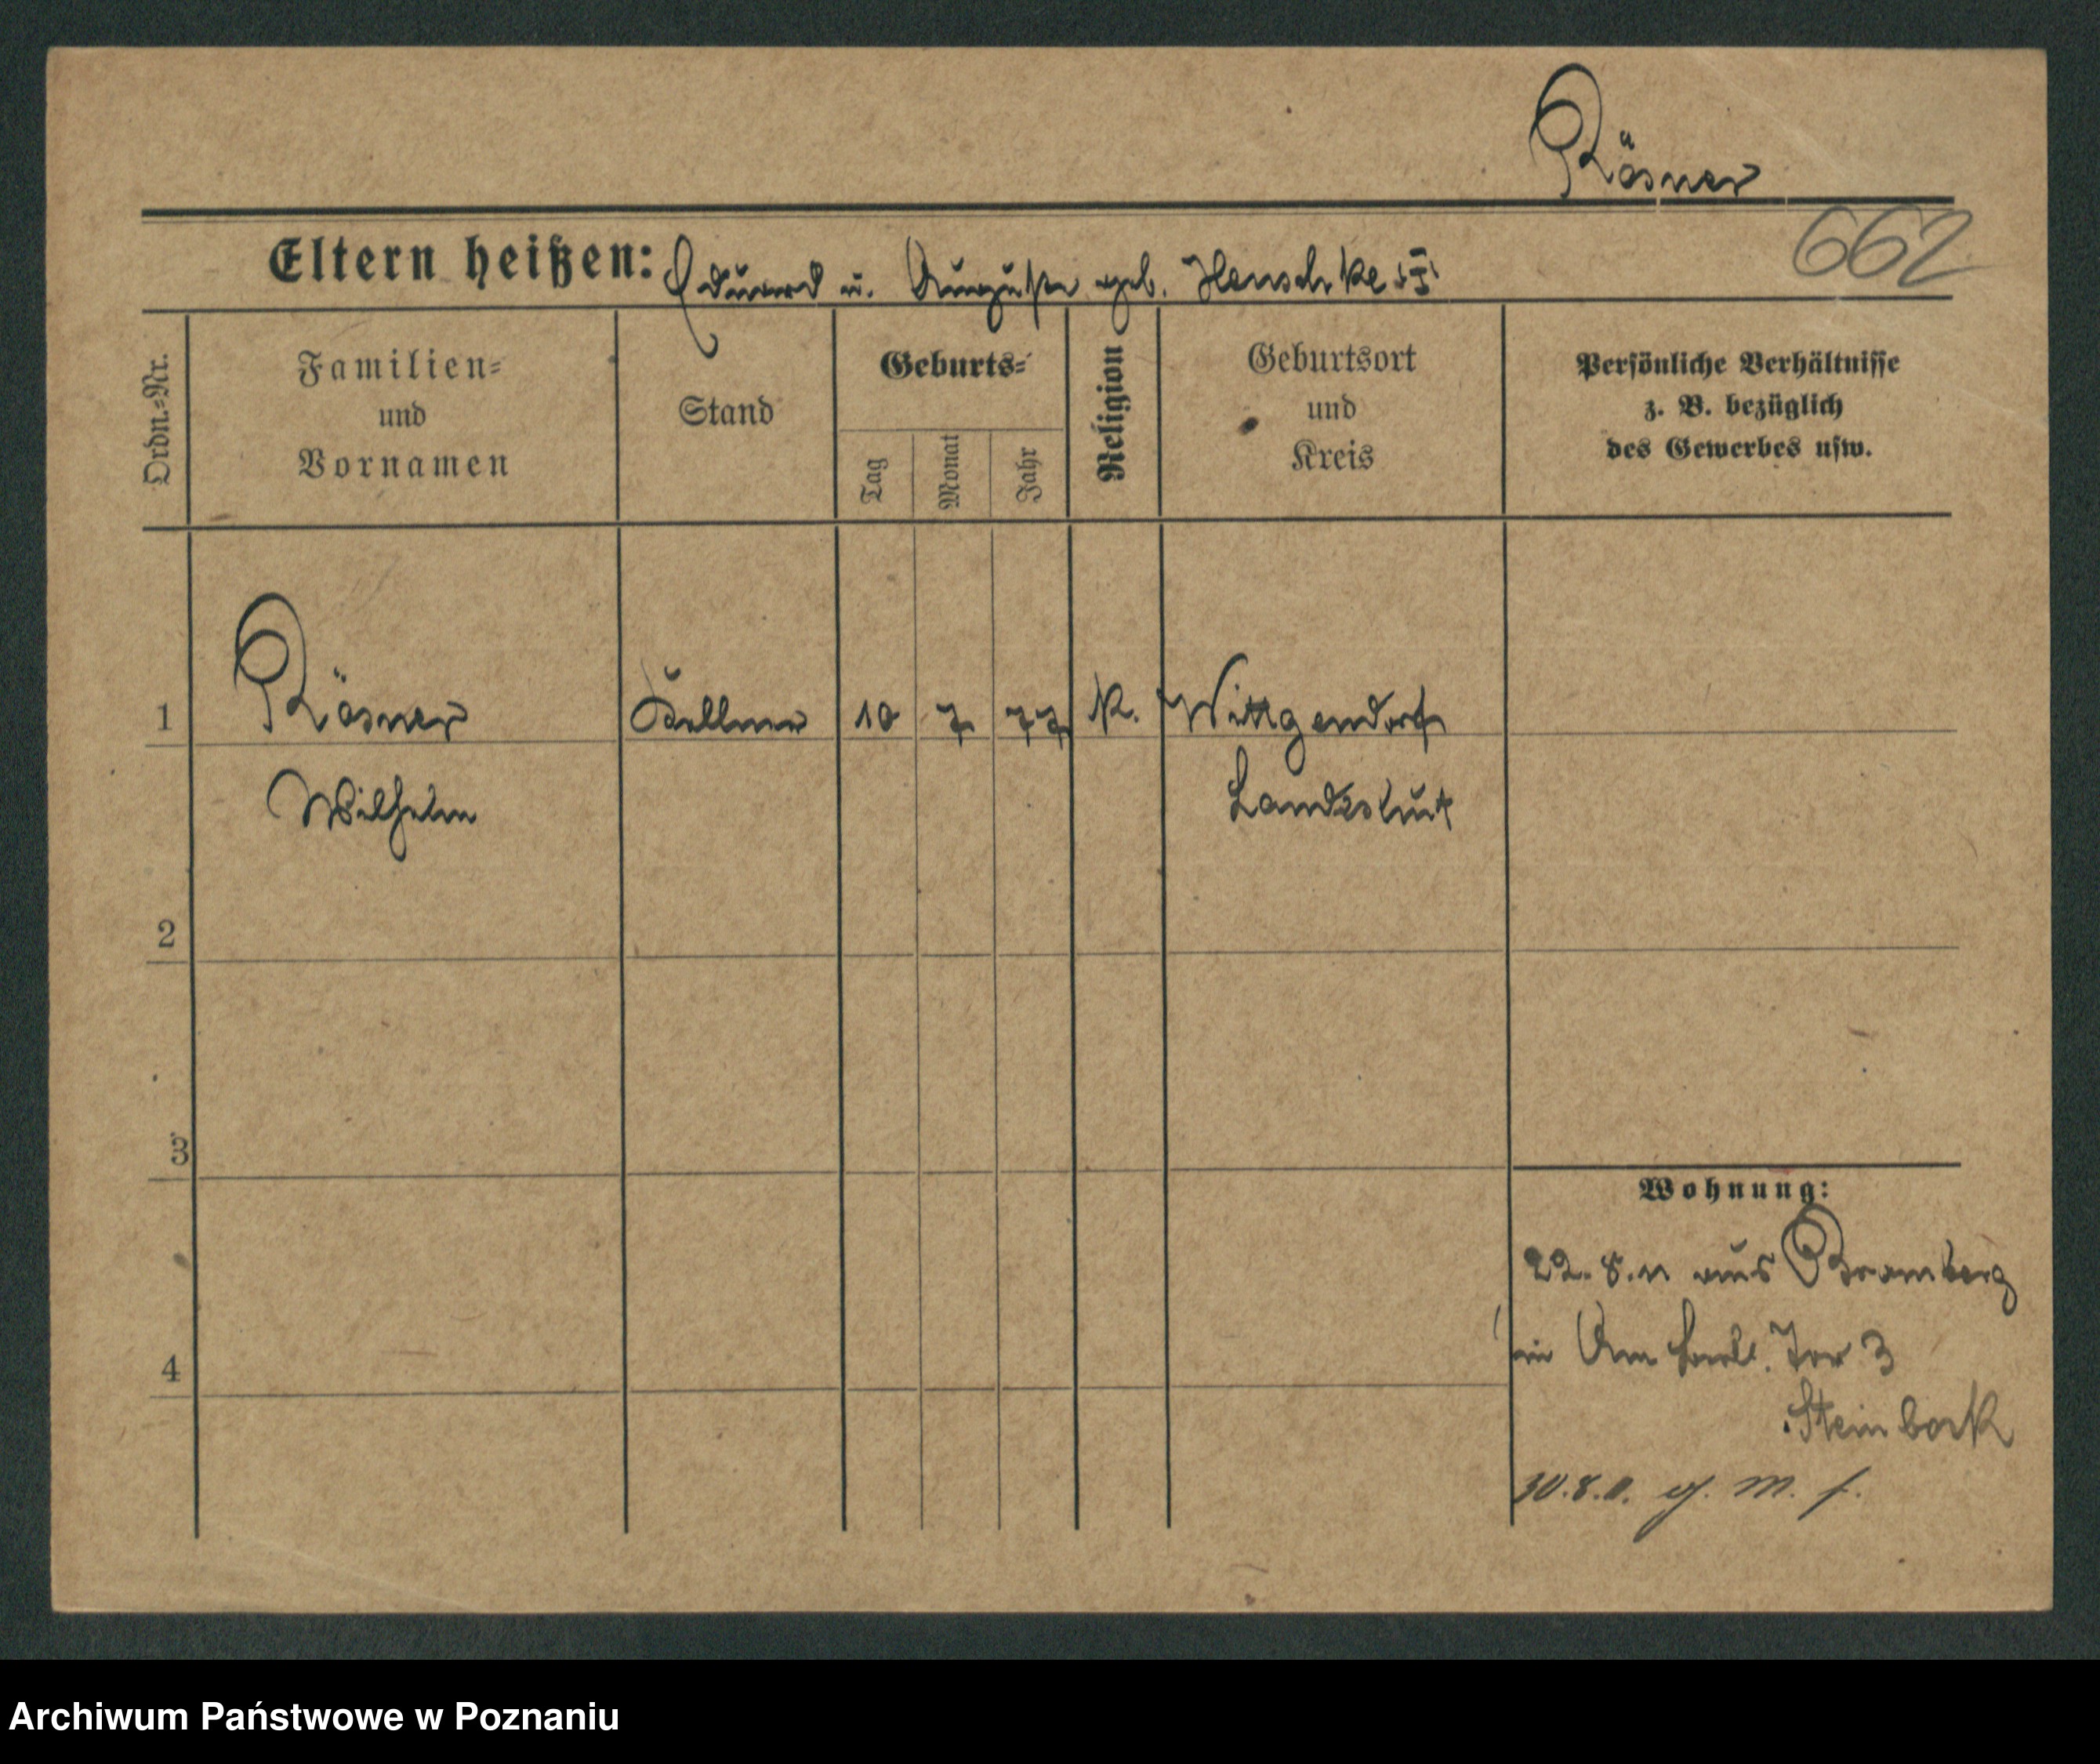 Rösner
662
Eltern heißen: Eduard u. Auguste geb. Henschke
Ordn.-Nr.
Familien-
und
Vornamen
Stand
Geburts-
Tag
Monat
Jahr
Religion
Geburtsort
und
Kreis
Persönliche Verhältnisse
z. B. bezüglich
des Gewerbes usw.
1 Rösner Kellner 10 7 77 K. Wittgendorf
Wilhelm Landeshut
2
3
4
Wohnung:
22. 8. 11 aus Bromberg
in Am Berl. Tor 3
Steinbock
30. 8. 11.
Archiwum Państwowe w Poznaniu